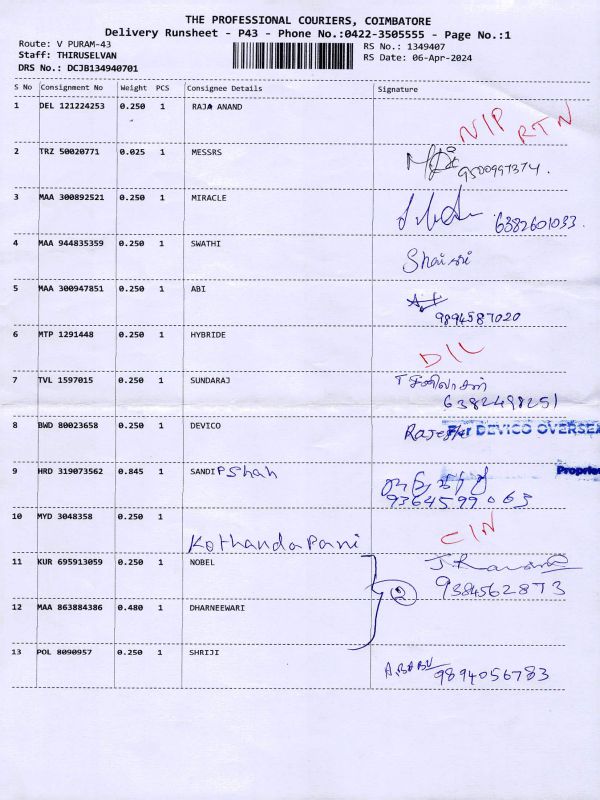 THE PROFESSIONAL COURIERS, COIMBATORE
Delivery Runsheet - P43 - Phone No.:0422-3505555 - Page No.:1
Route: V PURAM-43
RS No.: 1349407
Staff: THIRUSELVAN
RS Date: 06-Apr-2024
DRS No.: DCJB134940701
S No Consignment No Weight PCS Consignee Details Signature
1 DEL 121224253 0.250 1 RAJA ANAND NIP RTN
2 TRZ 50020771 0.025 1 MESSRS 9500997374.
3 MAA 300892521 0.250 1 MIRACLE 6382601033.
4 MAA 944835359 0.250 1 SWATHI
5 MAA 300947851 0.250 1 ABI
9894587020
6 MTP 1291448 0.250 1 HYBRIDE DIL
7 TVL 1597015 0.250 1 SUNDARAJ
6382498251
8 BWD 80023658 0.250 1 DEVICO For DEVICO OVERSEA
9 HRD 319073562 0.845 1 SANDIP Shah
Proprie
9364599063
10 MYD 3048358 0.250 1 CIN
Kothandapani
11 KUR 695913059 0.250 1 NOBEL
9384562873
12 MAA 863884386 0.480 1 DHARNEEWARI
2
13 POL 8090957 0.250 1 SHRIJI A.BABU 9894056783